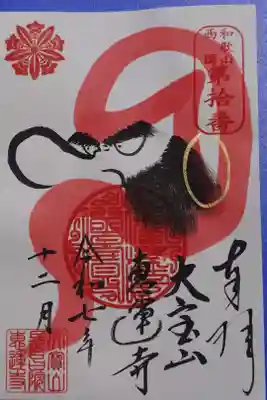 和歌山
西国
第拾番
奉拝
大宝山
惠運寺
令和七年
十二月